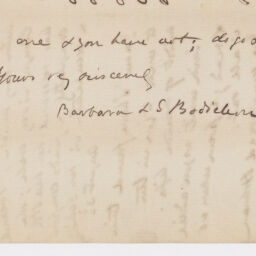 one & you have not; do go
Yours very sincerely
Barbara L S Bodichon